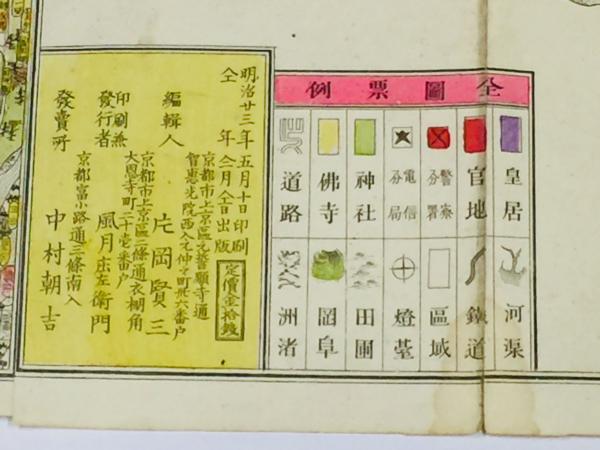 全圖票例
皇居
官地
警察分署
電信分局
神社
佛寺
道路
河渠
鐵道
區域
燈臺
田圃
岡阜
洲渚
明治廿三年五月十日印刷
仝 年 仝月仝日出版
定價金拾錢
京都市上京區元誓願寺通
智惠光院西入元仲之町卅六番戶
編輯人 片岡賢三
京都市上京區二條通衣棚角
大恩寺町二十壱番戶
印刷兼發行者 風月庄左衛門
京都富小路通三條南入
發賣所 中村朝吉